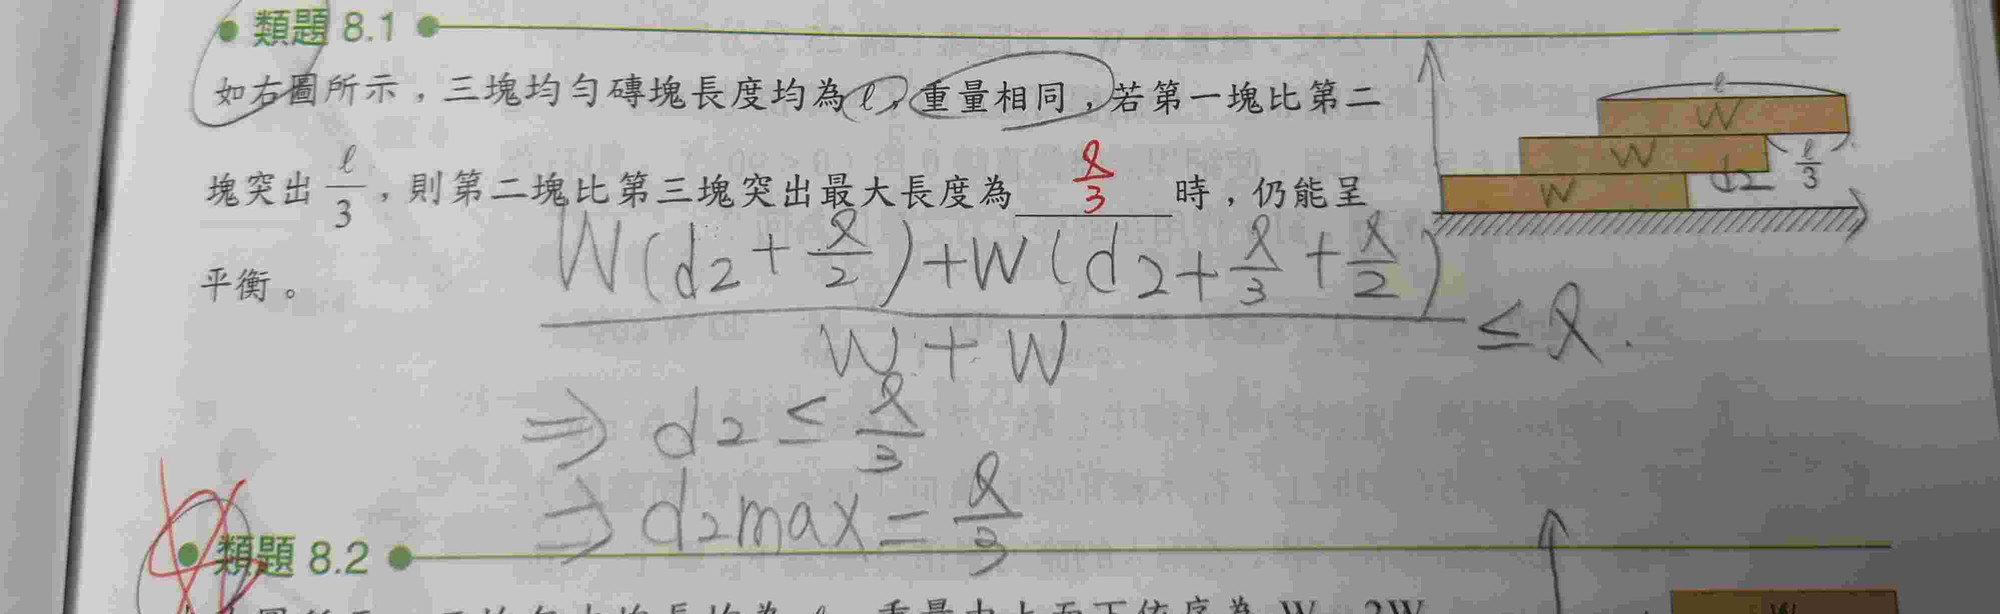 類題 8.1
如右圖所示，三塊均勻磚塊長度均為ℓ，重量相同，若第一塊比第二
塊突出 ℓ/3 ，則第二塊比第三塊突出最大長度為 ℓ/3 時，仍能呈
平衡。
ℓ
W
W
W
d2
ℓ/3
(W(d2+ℓ/2)+W(d2+ℓ/3+ℓ/2))/(W+W) ≤ ℓ.
⇒ d2 ≤ ℓ/3
⇒ d2max = ℓ/3
類題 8.2